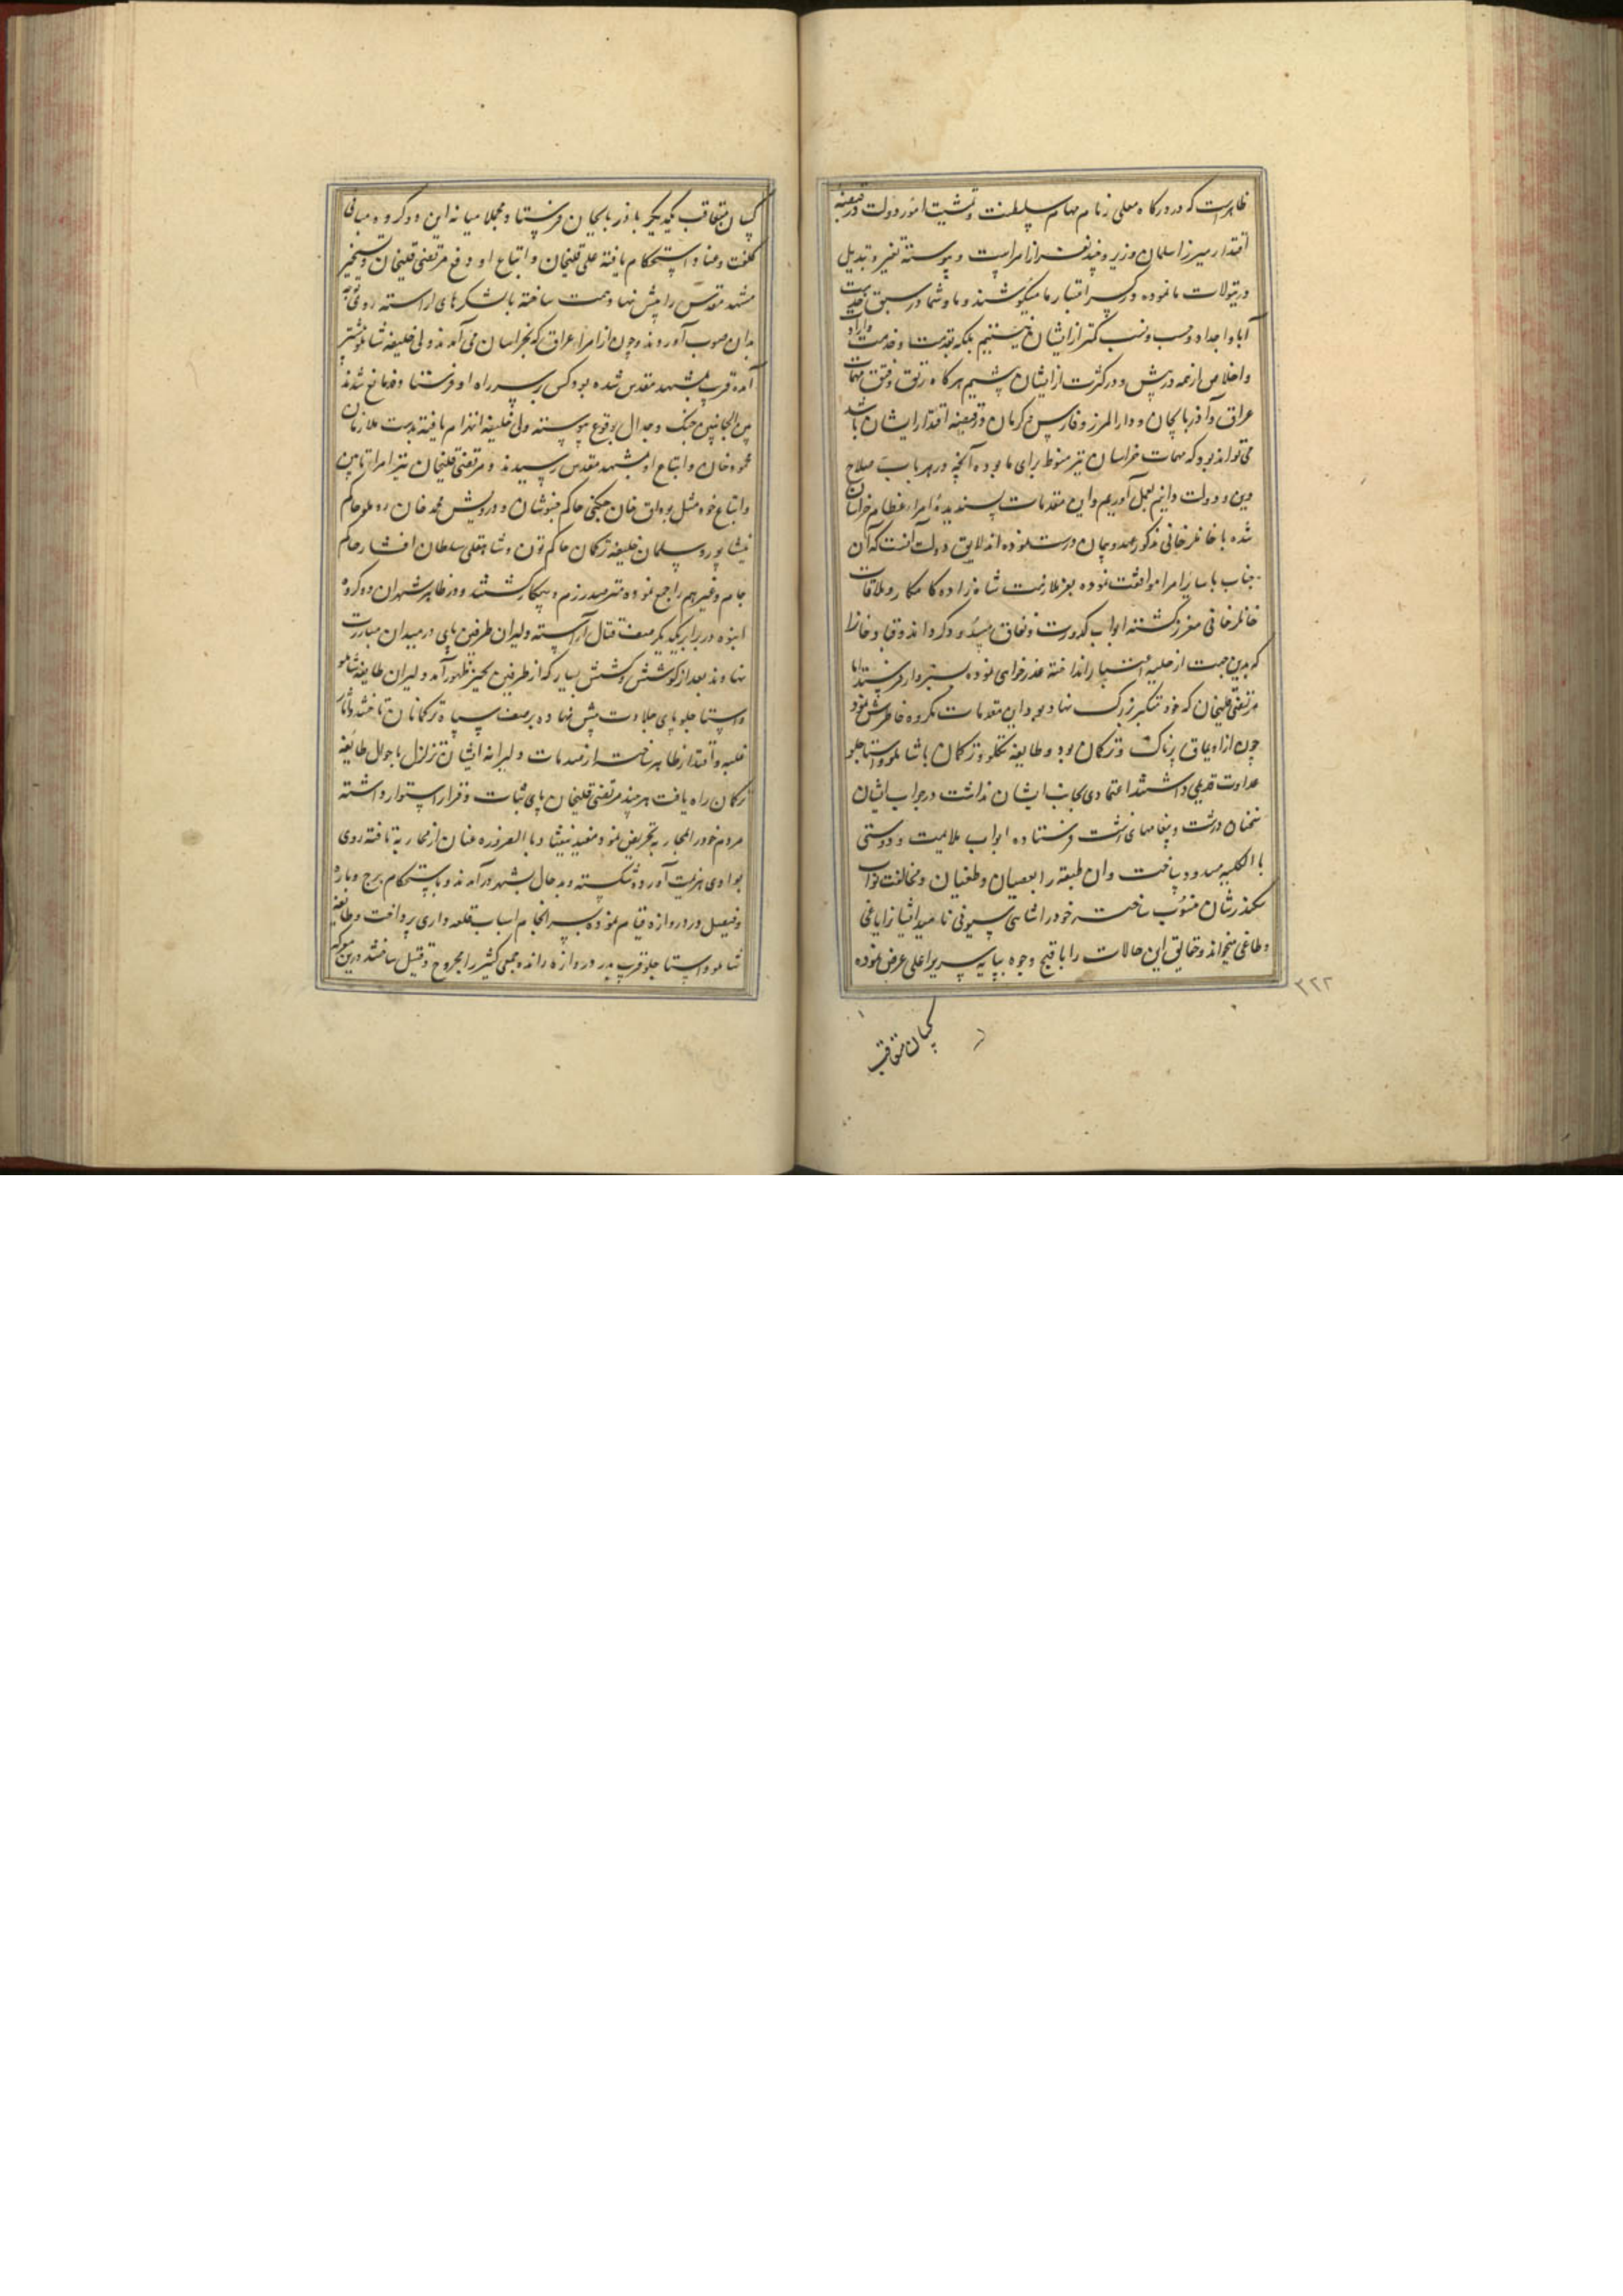 ظاهرست که در درگاه معلی زمام مهام سلطنت و تمشیت امور دولت در قبضه
اقتدار میرزا سلمان وزیر و چند نفر از امراست و پیوسته تغییر و تبدیل
در تیولات ما نموده در کسر اعتبار ما میکوشند و ما و شما در سبق خدمت
آبا و اجداد و حسب و نسب کمتر از ایشان نیستیم بلکه بقدمت خدمت و ارادت
و اخلاص از همه در پیش و در کثرت از ایشان بیشیم هرگاه رتق و فتق مهمات
عراق و آذربایجان و دارالمرز و فارس و کرمان در قبضه اقتدار ایشان باشد
می تواند بود که مهمات خراسان نیز منوط برای ما بوده آنچه در هر باب صلاح
دین و دولت دانیم بعمل آوریم و این مقدمات پسندیده امراء عظام خراسان
شده با خانلرخانی مذکور عهد و پیمان درست نموده اند لایق دولت آنست که آن
جناب با سایر امرا موافقت نموده بعز ملازمت شاه زاده کامکار و ملاقات
خانلرخانی معزز گشته ابواب کدورت و نفاق مسدود گرداند و قباد خانرا
که بدین جهت از حلیه اختیار انداخته عذرخواهی نموده بسبزوار فرستد اما
مرتضی قلیخان که خود متکبر بزرگ نهاد بود این مقدمات مکروه خاطرش نمود
چون از اویماق پرناک و ترکمان بود و طایفه تکلو و ترکمان با شاملو و استاجلو
عداوت قدیمی داشتند اعتمادی بجانب ایشان نداشت در جواب ایشان
سخنان درشت و پیغامهای زشت فرستاده ابواب ملایمت و دوستی
بالکلیه مسدود ساخت و آن طبقه را بعصیان و طغیان و مخالفت نواب
سکندرشان منسوب ساخته خود را شاهی سیونی نامید و ایشانرا یاغی
و طاغی میخواند و حقایق این حالات را باقبح وجوه بپایه سریر اعلی عرض نموده
۳۲۲
کسان متعاقب
کسان متعاقب یکدیگر بآذربایجان فرستاد مجملا میانه این دو گروه مبانی
کلفت و عناد استحکام یافته علی قلیخان و اتباع او دفع مرتضی قلیخان و تسخیر
مشهد مقدس را پیش نهاد همت ساخته با لشکرهای آراسته روی توجه
بدان صوب آوردند و چون از امراء عراق که بخراسان می آمدند ولی خلیفه شاملو پیشتر
آمده قریب بمشهد مقدس شده بود کس بر سر راه او فرستاده مانع شدند
بین الجانبین جنگ و جدال بوقوع پیوسته ولی خلیفه انهزام یافته بدست ملازمان
محمود خان و اتباع او بمشهد مقدس رسیدند و مرتضی قلیخان نیز امراء تابین
و اتباع خود مثل بوداق خان چگنی حاکم خبوشان و درویش محمد خان روملو حاکم
نیشاپور و سلمان خلیفه ترکمان حاکم تون و شاهقلی سلطان افشار حاکم
جام و غیرهم را جمع نموده مترصد رزم و پیکار گشتند و در ظاهر شهر آن دو گروه
انبوه در برابر یکدیگر صف قتال آراسته دلیران طرفین پای در میدان مبارزت
نهادند بعد از کوشش و کشش بسیار که از طرفین بحیز ظهور آمد دلیران طایفه شاملو
و استاجلو پای جلادت پیش نهاده بر صف سپاه ترکمانان تاختند و آثار
غلبه و اقتدار ظاهر ساختند از صدمات دلیرانه ایشان تزلزل باحوال طایفه
ترکمان راه یافت هر چند مرتضی قلیخان پای ثبات و قرار استوار داشته
مردم خود را بمحاربه تحریض نمود مفید نیفتاد بالضروره عنان از محاربه تافته روی
بوادی هزیمت آورده شکسته و بدحال بشهر درآمدند و باستحکام برج و باره
و فصیل و دروازه قیام نموده بسرانجام اسباب قلعه داری پرداخت و طایفه
شاملو و استاجلو قریب بدر دروازه رانده جمعی کثیر را مجروح و قتیل ساختند درین معرکه